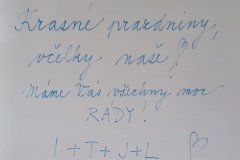 Krásné prazdniny,
včelky naše!
Máme Vás všechny moc
RÁDY!
I+T+J+L